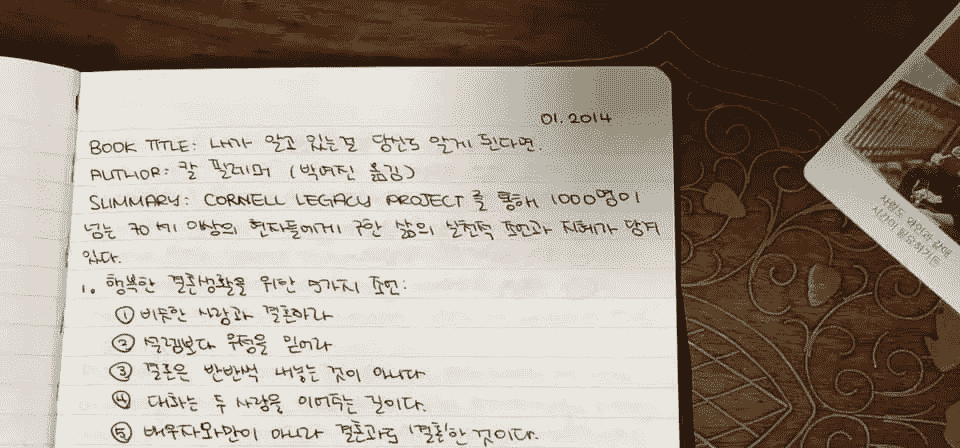 01.2014
BOOK TITLE: 내가 알고 있는걸 당신도 알게 된다면.
AUTHOR: 칼 필레머 (박여진 옮김)
SUMMARY: CORNELL LEGACY PROJECT 를 통해 1000명이
넘는 70세 이상의 현자들에게 구한 삶의 실천적 조언과 지혜가 담겨
있다.
1. 행복한 결혼생활을 위한 5가지 조언:
① 비슷한 사람과 결혼하라
② 설렘보다 우정을 믿어라
③ 결혼은 반반씩 내놓는 것이 아니다
④ 대화는 두 사람을 이어주는 길이다.
⑤ 배우자와만이 아니라 결혼과도 '결혼'한 것이다.
사람도 와인과 같아
시간이 필요하거든